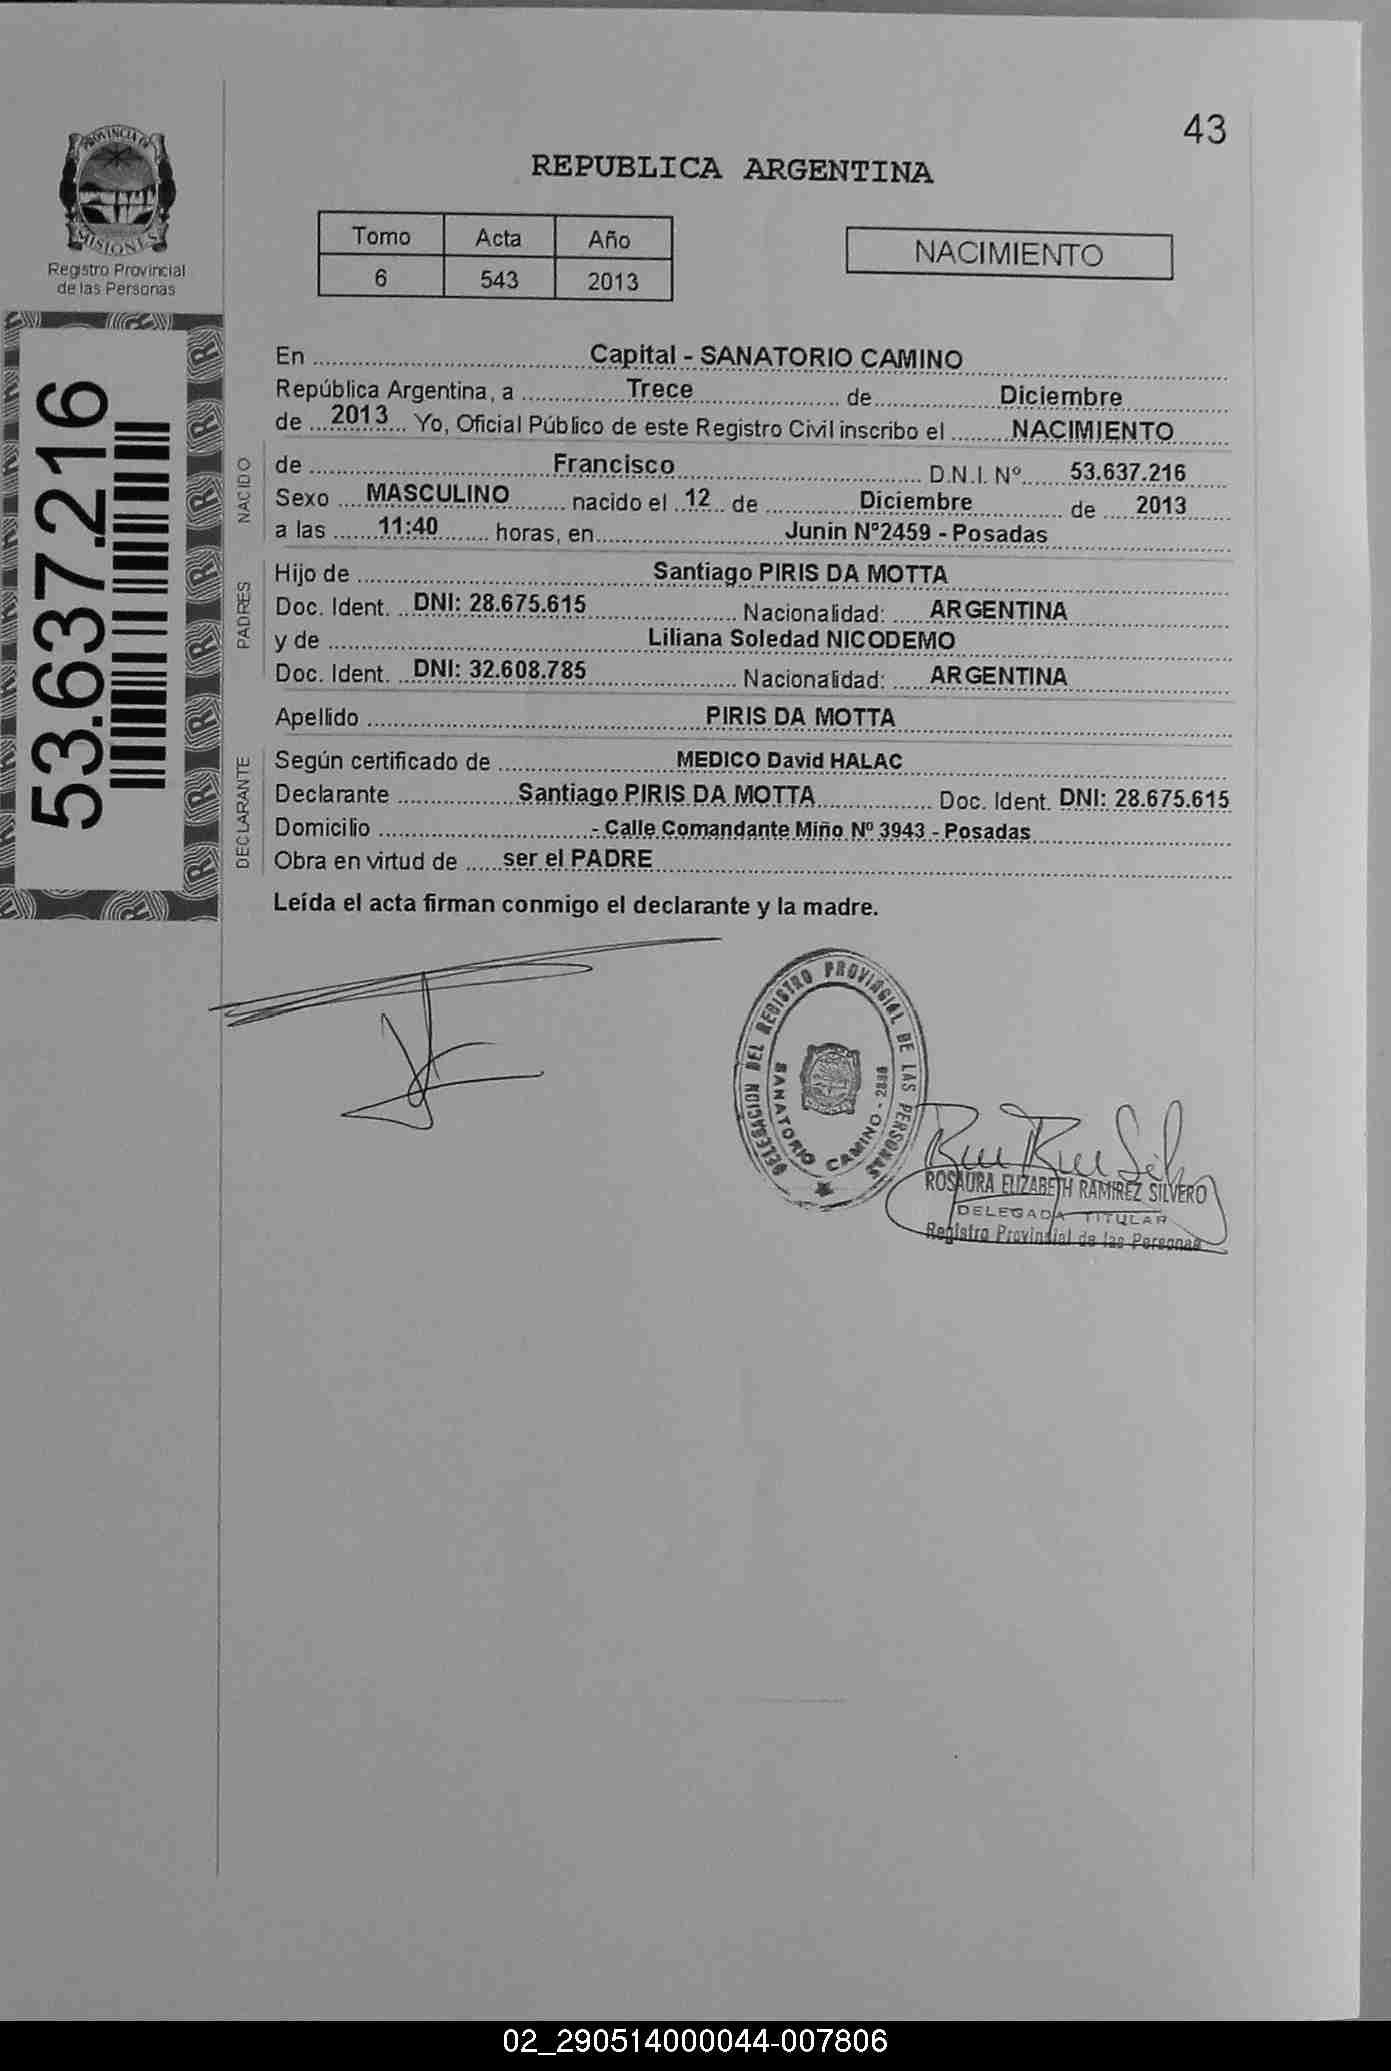 43
REPUBLICA ARGENTINA
PROVINCIA DE
MISIONES
Registro Provincial
de las Personas
Tomo Acta Año
6 543 2013
NACIMIENTO
53.637.216
En Capital - SANATORIO CAMINO
República Argentina, a Trece de Diciembre
de 2013 Yo, Oficial Público de este Registro Civil inscribo el NACIMIENTO
NACIDO
de Francisco D.N.I. Nº 53.637.216
Sexo MASCULINO nacido el 12 de Diciembre de 2013
a las 11:40 horas, en Junin Nº2459 - Posadas
PADRES
Hijo de Santiago PIRIS DA MOTTA
Doc. Ident. DNI: 28.675.615 Nacionalidad: ARGENTINA
y de Liliana Soledad NICODEMO
Doc. Ident. DNI: 32.608.785 Nacionalidad: ARGENTINA
Apellido PIRIS DA MOTTA
DECLARANTE
Según certificado de MEDICO David HALAC
Declarante Santiago PIRIS DA MOTTA Doc. Ident. DNI: 28.675.615
Domicilio - Calle Comandante Miño Nº 3943 - Posadas
Obra en virtud de ser el PADRE
Leída el acta firman conmigo el declarante y la madre.
DELEGACION DEL REGISTRO PROVINCIAL DE LAS PERSONAS
SANATORIO CAMINO -
ROSAURA ELIZABETH RAMIREZ SILVERO
DELEGADA TITULAR
Registro Provincial de las Personas
02_290514000044-007806